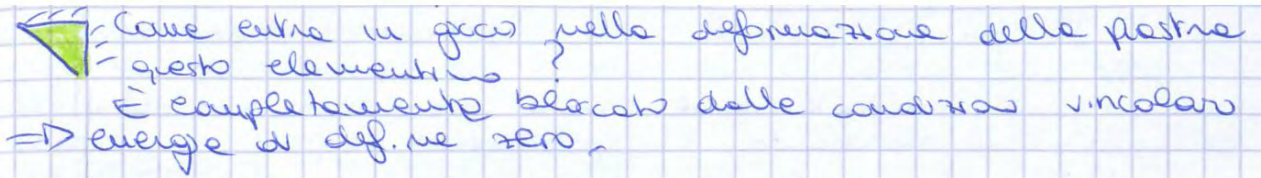 Come entra in gioco nella deformazione della piastra
questo elementino?
È completamente bloccato dalle condizioni vincolari
=> energia di def.ne zero.